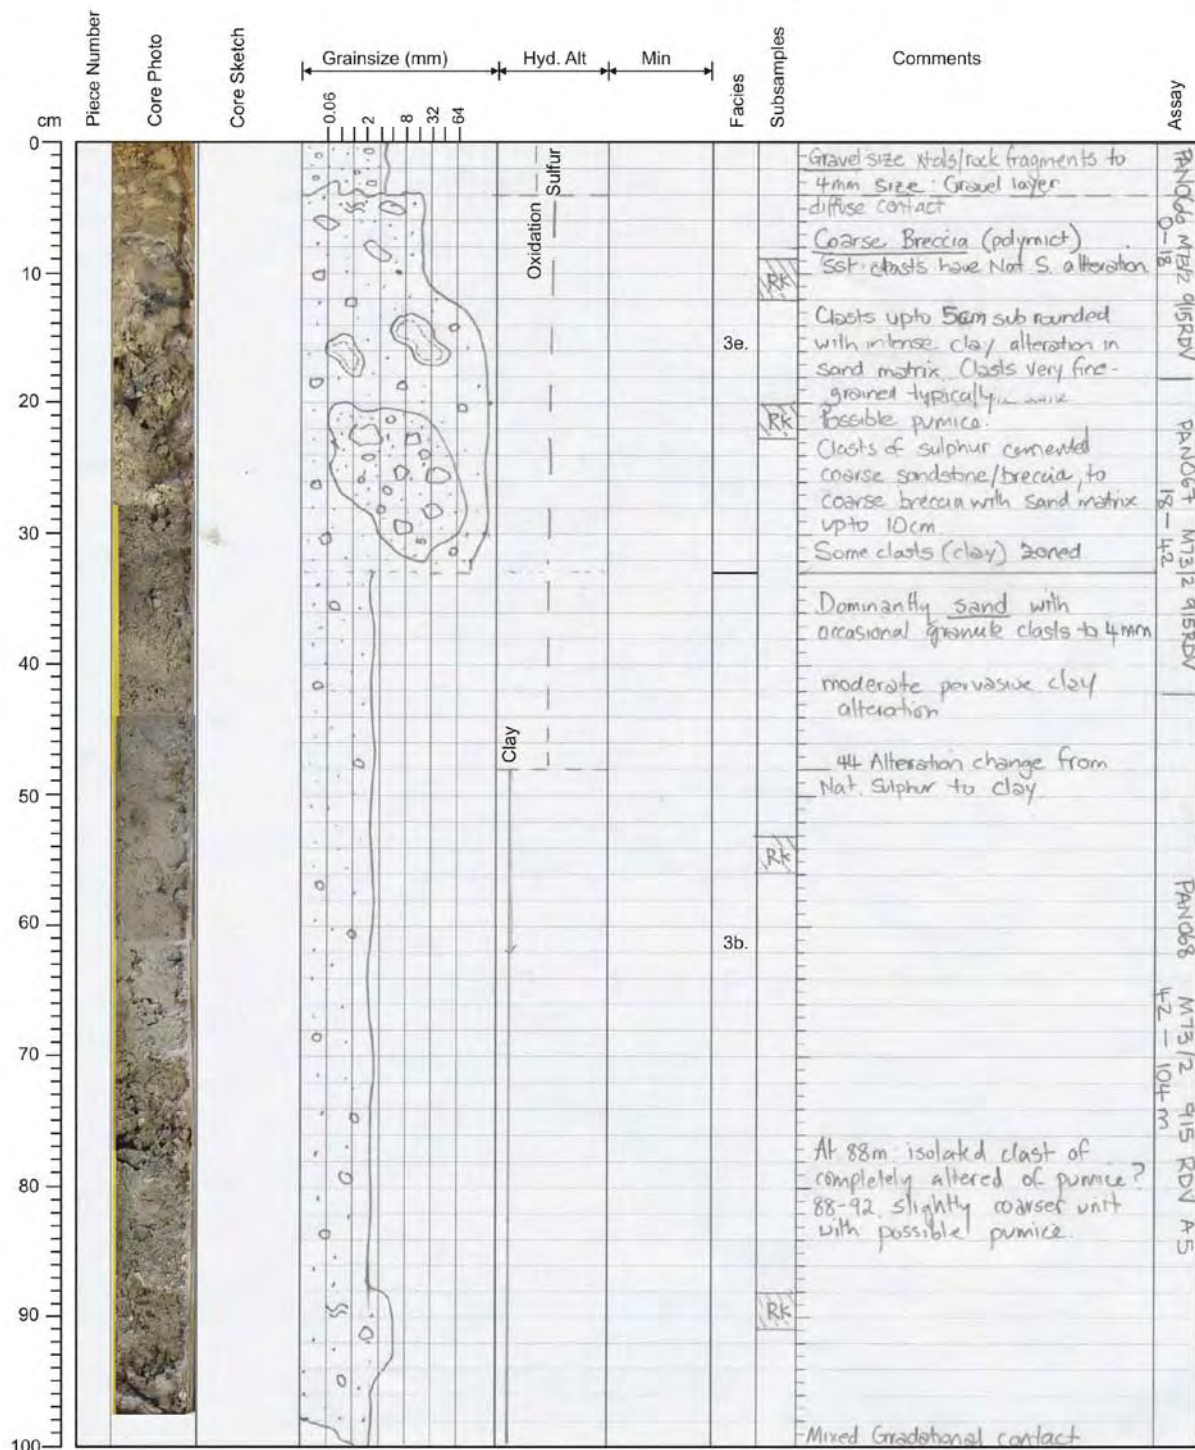 cm
Piece Number
Core Photo
Core Sketch
Grainsize (mm)
Hyd. Alt
Min
Facies
Subsamples
Comments
Assay
0.06
2
8
32
64
0
10
20
30
40
50
60
70
80
90
100
Oxidation
Sulfur
Clay
3e.
3b.
Rk
Rk
Rk
Rk
Gravel size xtals/rock fragments to
4mm size : Gravel layer
diffuse contact
Coarse Breccia (polymict)
Sst clasts have Nat S. alteration
Clasts upto 5cm sub rounded
with intense clay alteration in
sand matrix. Clasts very fine-
grained typically
Possible pumice.
Clasts of sulphur cemented
coarse sandstone/breccia, to
coarse breccia with sand matrix
upto 10cm
Some clasts (clay) zoned
Dominantly sand with
occasional granule clasts to 4mm
moderate pervasive clay
alteration
44 Alteration change from
Nat. Sulphur to clay
At 88m isolated clast of
completely altered of pumice?
88-92 slightly coarser unit
with possible pumice.
Mixed Gradational contact
PAN066 M73/2 915RDV
0-18
PAN067 M73/2 915RDV
18-42
PAN068 M73/2 915 RDV A5
42-104m